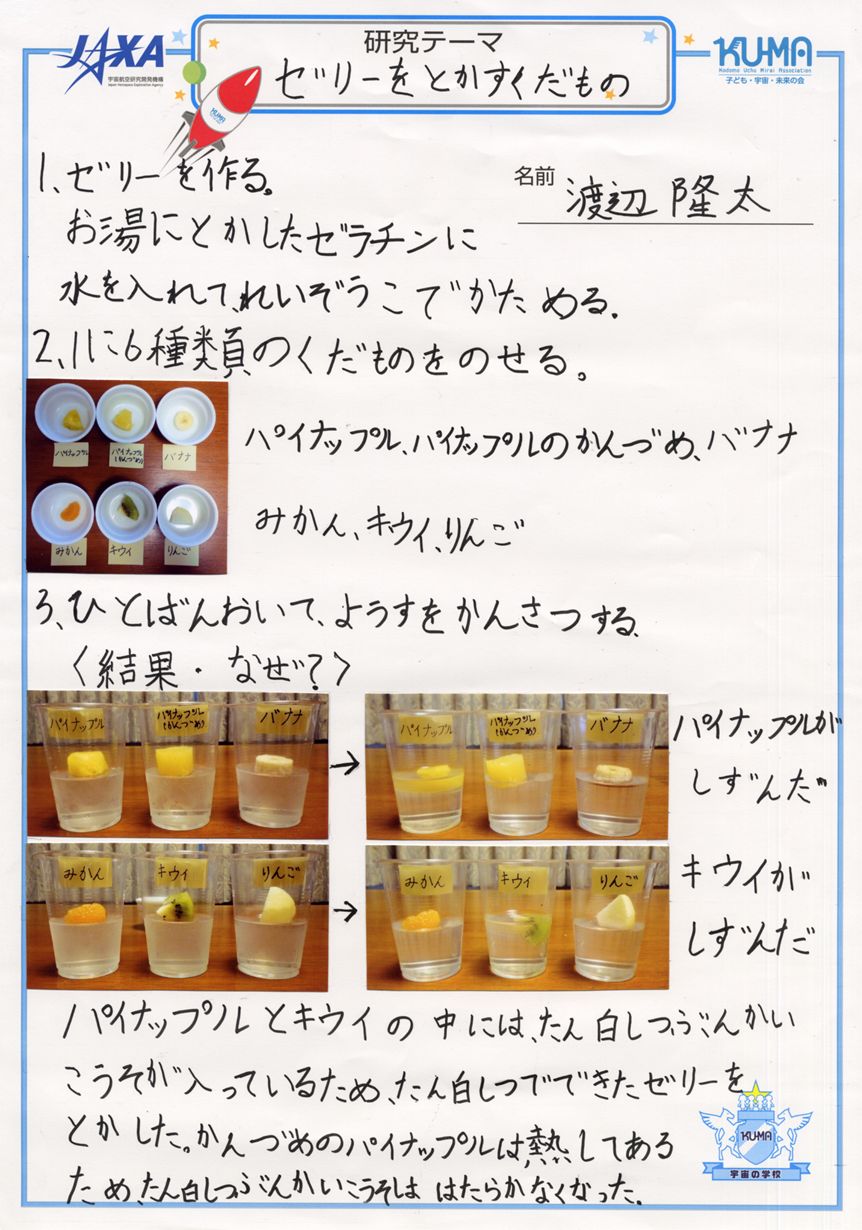 JAXA
宇宙航空研究開発機構
Japan Aerospace Exploration Agency
研究テーマ
ゼリーをとかすくだもの
KU-MA
Kodomo Uchu Mirai Association
子ども・宇宙・未来の会
KU-MA
1、ゼリーを作る。
名前 渡辺 隆太
お湯にとかしたゼラチンに
水を入れて、れいぞうこでかためる.
2、1に6種類のくだものをのせる。
パイナップル
パイナップル(かんづめ)
バナナ
みかん
キウイ
りんご
パイナップル、パイナップルのかんづめ、バナナ
みかん、キウイ、りんご
3、ひとばんおいて、ようすをかんさつする。
〈結果・なぜ?〉
パイナップル
パイナップル(かんづめ)
バナナ
→
パイナップル
パイナップル(かんづめ)
バナナ
パイナップルが
しずんだ
みかん
キウイ
りんご
→
みかん
キウイ
りんご
キウイが
しずんだ
パイナップルとキウイの中には、たん白しつぶんかい
こうそが入っているため、たん白しつでできたゼリーを
とかした。かんづめのパイナップルは熱してある
ため、たん白しつぶんかいこうそは はたらかなくなった。
KU-MA
宇宙の学校